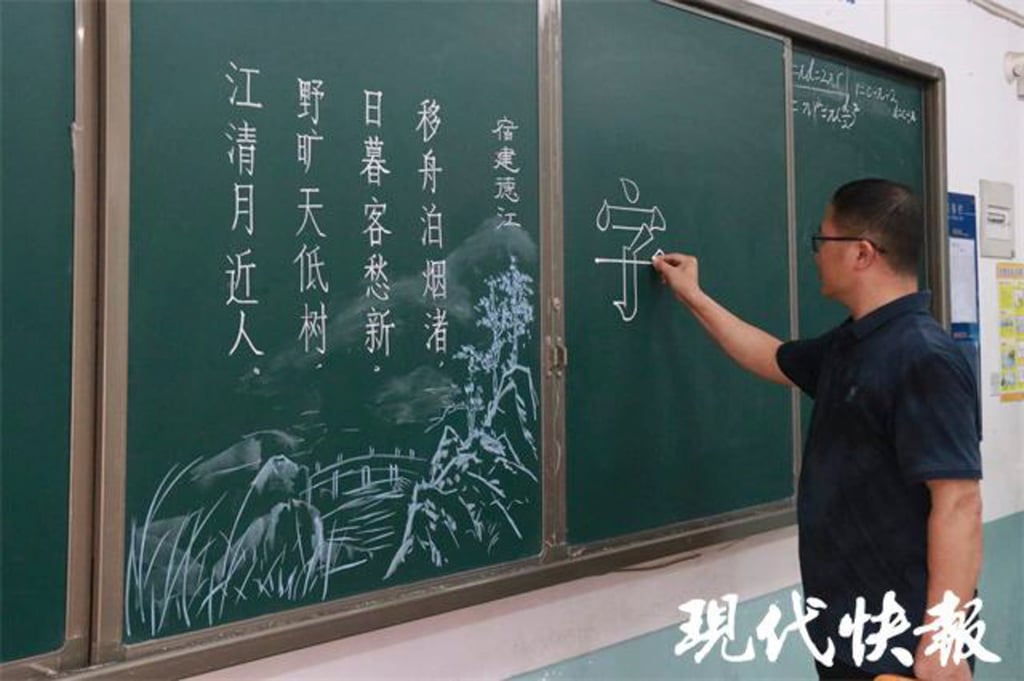 宿建德江
移舟泊烟渚，
日暮客愁新。
野旷天低树，
江清月近人。
字
現代快報